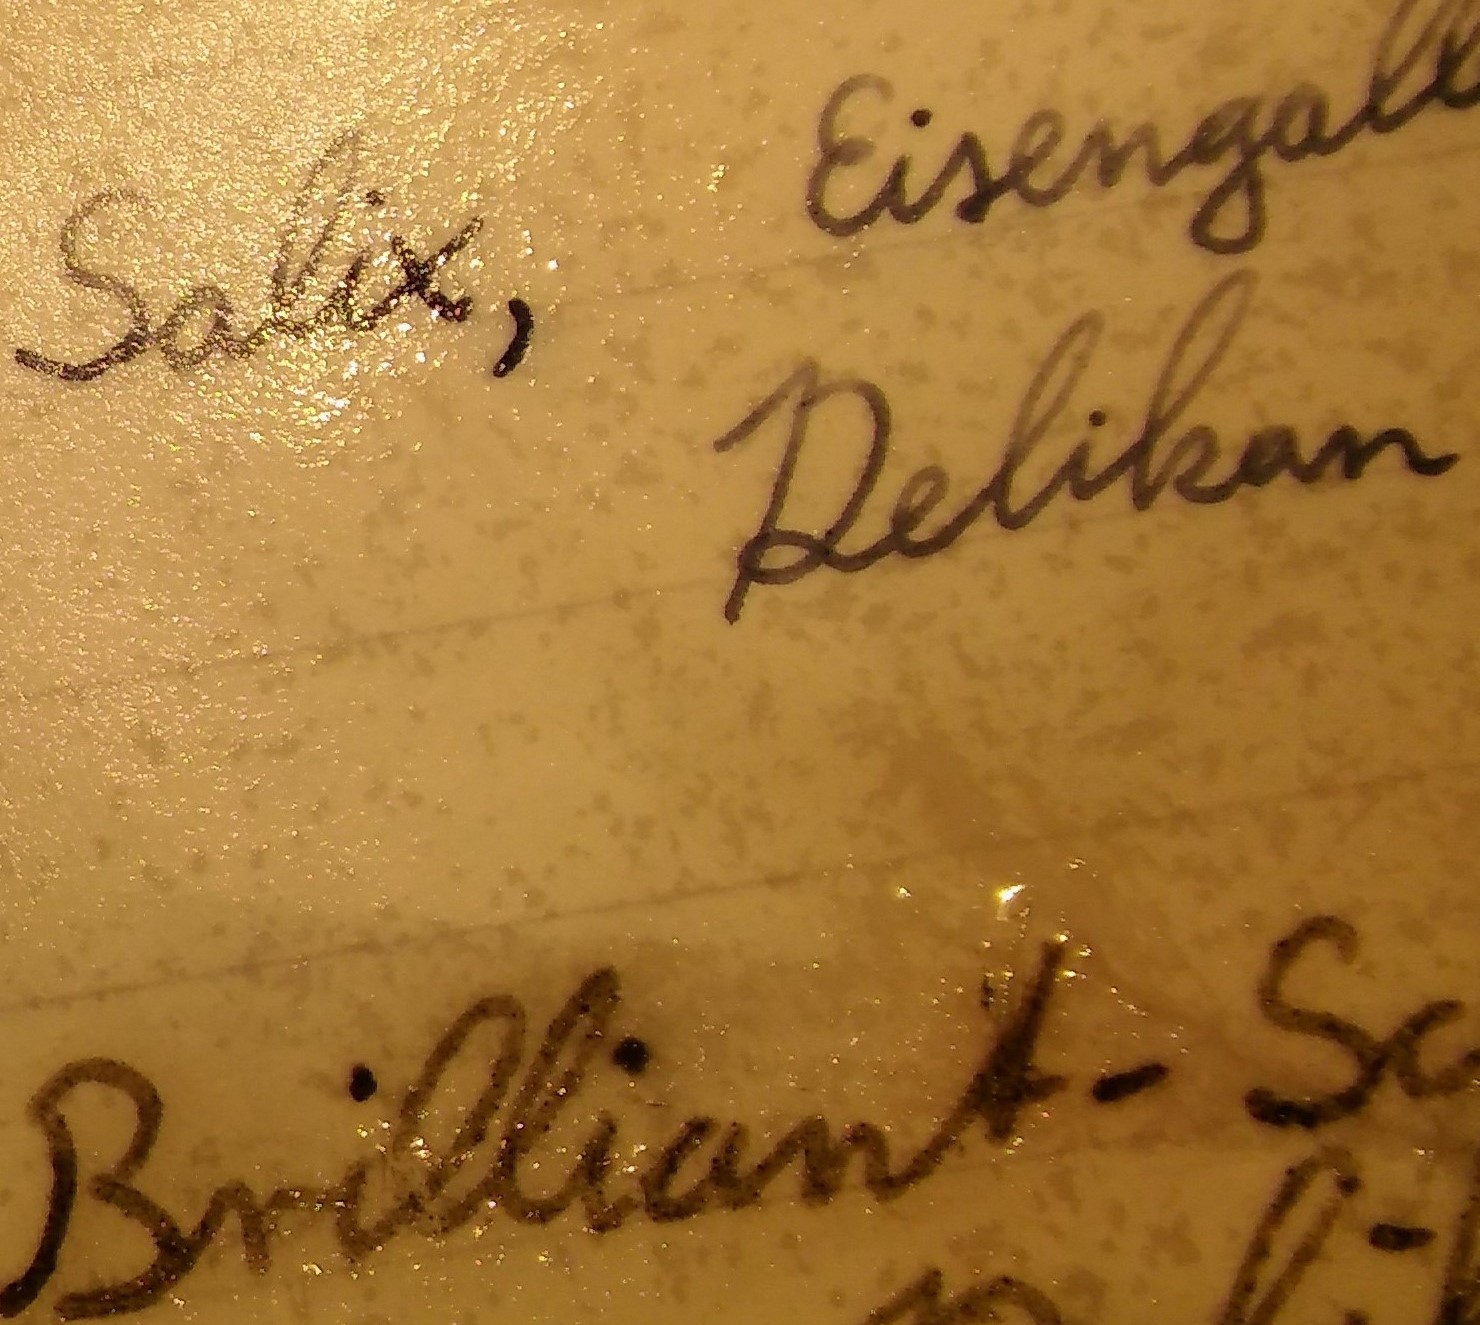 Salix, Eisengall
Pelikan
Brilliant-Sc